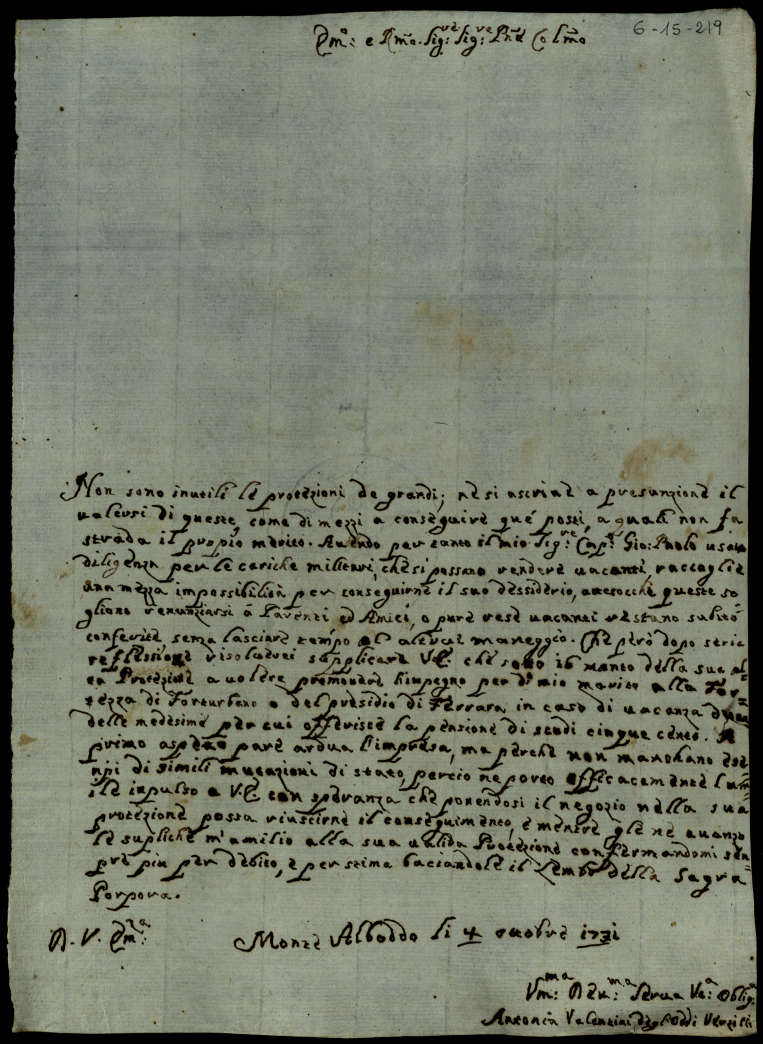 6-15-219
Em̃o: e Rm̃o. Sig:re Sig:re Pñe Colm̃o
Non sono inutili le protezioni de grandi; ne si ascrive a presunzione il
valersi di queste, come di mezzi a conseguire què posti, a quali non fa
strada il proprio merito. Avendo per tanto il mio Sig:re Cap:n Gio: Paolo usata
diligenza per le cariche militari, che si possano rendere vacanti, raccoglie
una mezza impossibilità per conseguirne il suo dessiderio, attesocchè queste so=
gliono renunziarsi à Parenti ed Amici, o pure rese vacanti restano subito
conferite senza lasciare tempo ad alcun maneggio. Che però dopo serie
reflessioni risolvei supplicare V.E. che sotto il manto della sua al=
ta Protezione a volere promovere l'impegno per d:o mio marito alla For=
tezza di Forturbano o del presidio di Ferrara in caso di vacanza
delle medesime per cui offerisce la pensione di scudi cinque cento. A
primo aspetto pare ardua l'impresa, ma perche non manchano ese=
npi di simili mutazioni di stato, perciò ne porto efficacemente l'um=
ile impulso a V.E. con speranza che ponendosi il negozio nella sua
protezione possa riuscirne il conseguimento, e mentre gle ne avanzo
le supliche m'umilio alla sua valida Protezione confermandomi sem=
pre più per debito, e per stima baciandole il Lembo della Sagra
Porpora.
D. V. Em̃:za
Monte Alboddo li 4 ottobre 1731
Um:ma Dev:ma Serva Ve:a Oblig:a
Antonia Valentini degl'Oddi Verzilli